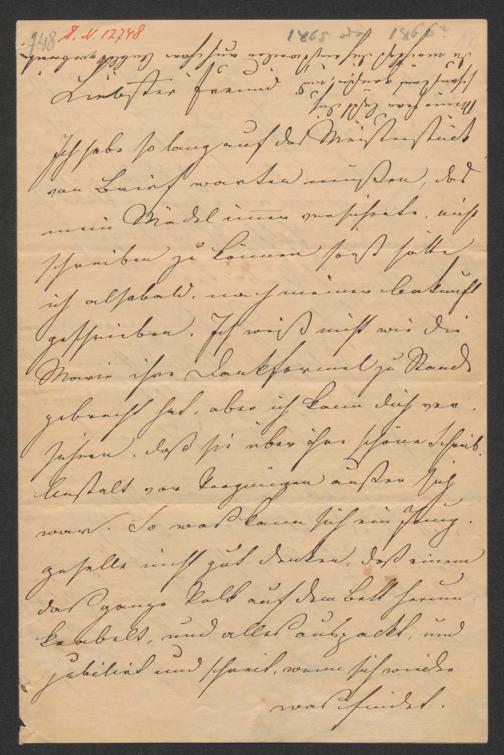 748 I. N. 12748
Liebster Freund
Ich habe so lang auf das Meisterstück
von Brief warten müßen, das
mein Mädel immer versicherte, nicht
schreiben zu können sonst hätte
ich alsobald, nach meiner Ankunft
geschrieben. Ich weiß nicht wie die
Marie ihre Dankformel zu Stande
gebracht hat, aber ich kann dich ver-
sichern, daß sie über ihre schöne Schreib-
Anstalt vor Vergnügen außer sich
war. So was kann sich ein Jung-
geselle nicht gut denken, daß einem
das ganze Volk auf dem Bett herum
krabelt, und alles auspackt, und
jubiliert und schreit, wenn sich wieder
was findet.